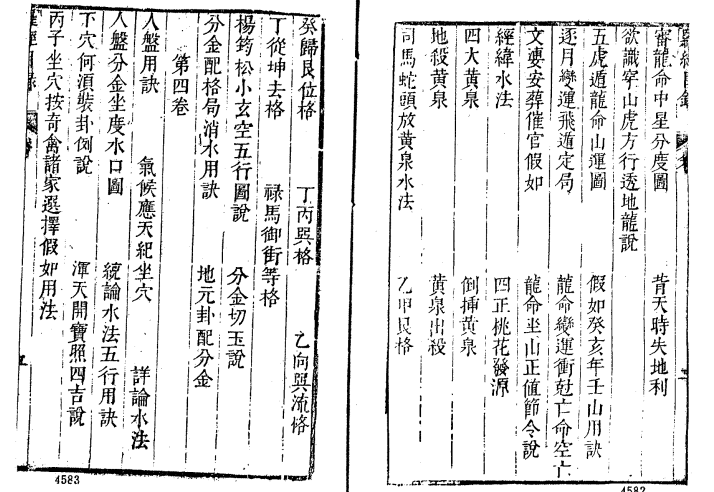 審龍命中星分度圖 背天時失地利
欲識穿山虎方行透地龍說
五虎遁龍命山運圖 假如癸亥年壬山用訣
逐月變運飛遁定局 龍命變運衝尅亡命空亡
文婁安葬催官假如 龍命坐山正值節令說
經緯水法 四正桃花發源
四大黃泉 倒挿黃泉
地殺黃泉 黃泉出殺
司馬蛇頭放黃泉水法 乙甲艮格
4582
癸歸艮位格 丁丙巽格 乙向巽流格
丁從坤去格 禄馬御街等格
楊筠松小玄空五行圖說 分金切玉說
分金配格局消水用訣 地元卦配分金
第四卷
人盤用訣 氣候應天紀坐穴 詳論水法
人盤分金坐度水口圖 統論水法五行用訣
下穴何須裝卦例說 渾天開寶照四吉說
丙子坐穴按奇禽諸家選擇假如用法
4583